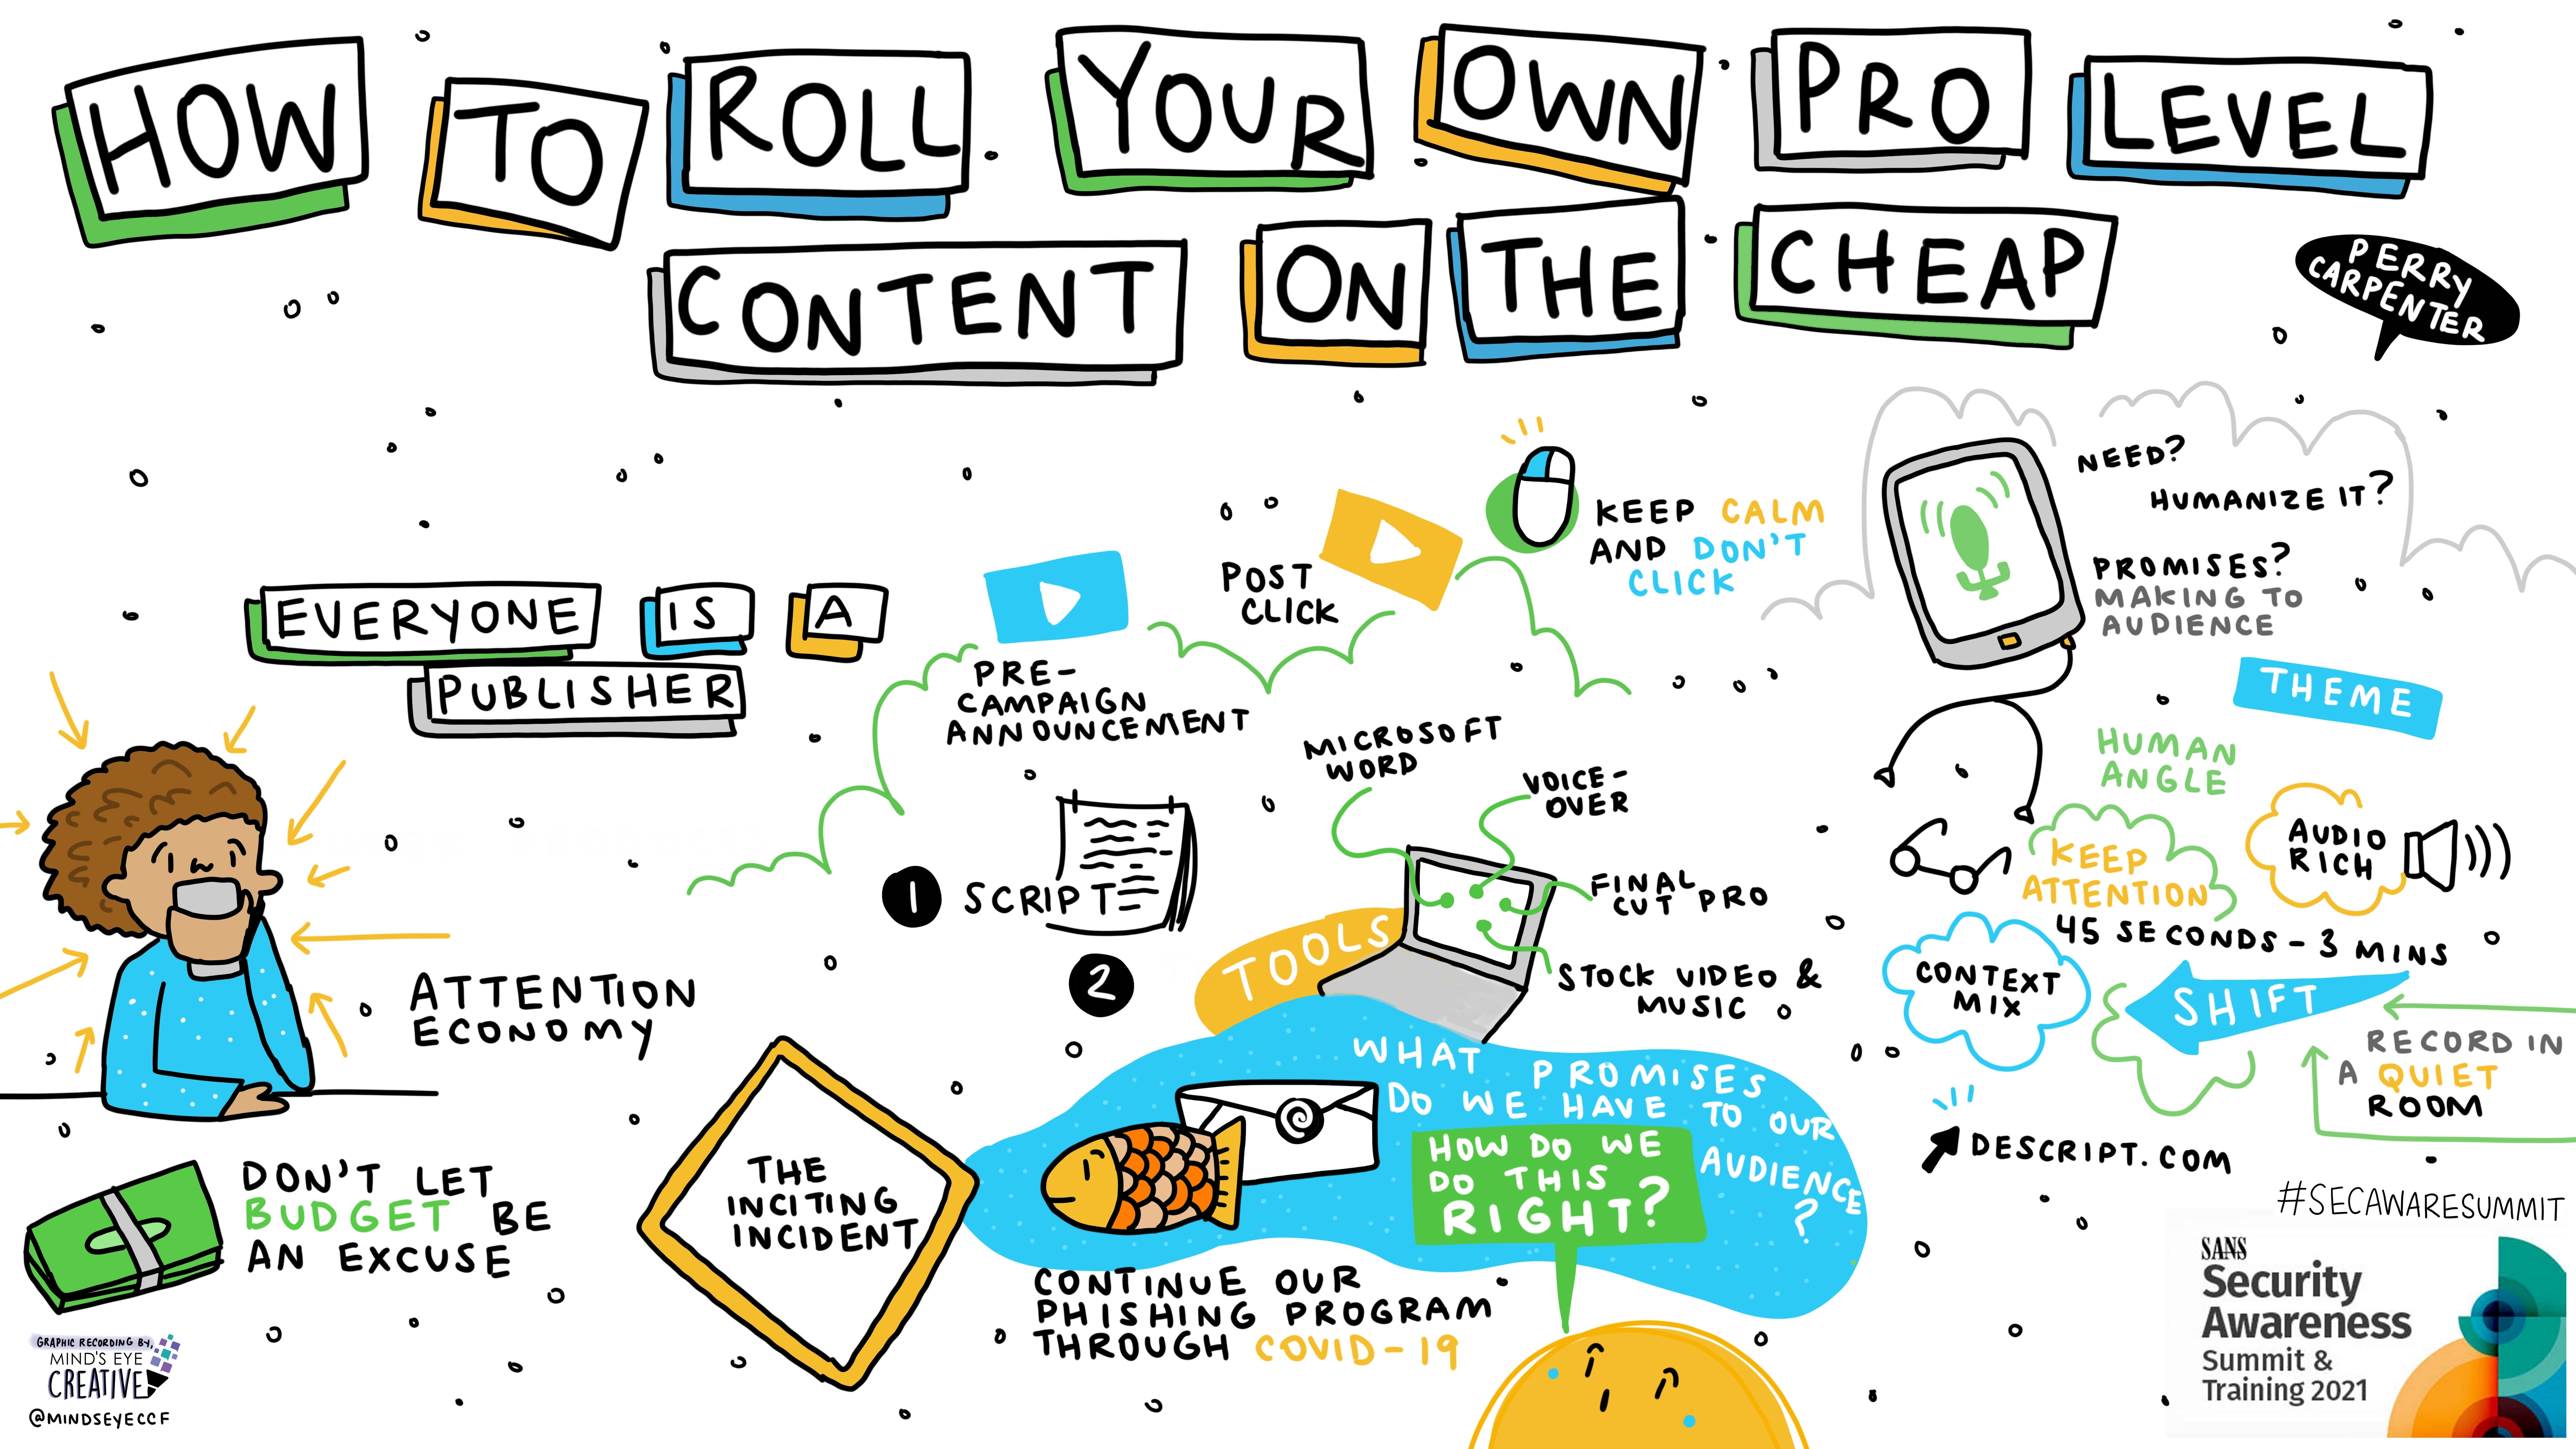 HOW TO ROLL YOUR OWN PRO LEVEL
CONTENT ON THE CHEAP
PERRY
CARPENTER
EVERYONE IS A
PUBLISHER
ATTENTION
ECONOMY
DON'T LET
BUDGET BE
AN EXCUSE
PRE-
CAMPAIGN
ANNOUNCEMENT
POST
CLICK
KEEP CALM
AND DON'T
CLICK
1 SCRIPT
2
TOOLS
MICROSOFT
WORD
VOICE-
OVER
FINAL
CUT PRO
STOCK VIDEO &
MUSIC
THE
INCITING
INCIDENT
WHAT PROMISES
DO WE HAVE TO OUR
AUDIENCE
?
HOW DO WE
DO THIS
RIGHT?
CONTINUE OUR
PHISHING PROGRAM
THROUGH COVID-19
NEED?
HUMANIZE IT?
PROMISES?
MAKING TO
AUDIENCE
THEME
HUMAN
ANGLE
KEEP
ATTENTION
AUDIO
RICH
45 SECONDS - 3 MINS
CONTEXT
MIX
SHIFT
RECORD IN
A QUIET
ROOM
DESCRIPT.COM
#SECAWARESUMMIT
SANS
Security
Awareness
Summit &
Training 2021
GRAPHIC RECORDING BY,
MIND'S EYE
CREATIVE
@MINDSEYECCF